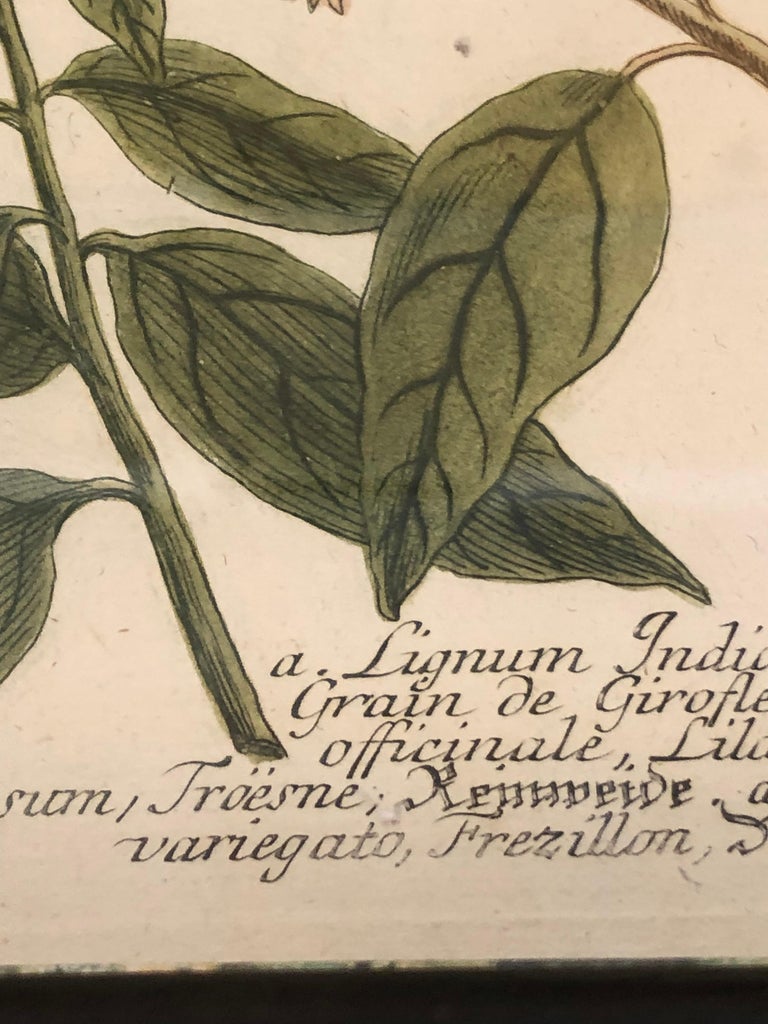 a. Lignum Indic
Grain de Girofle
officinale, Lila
sum, Tröesne, Reinweide. a
variegato, Frezillon, D